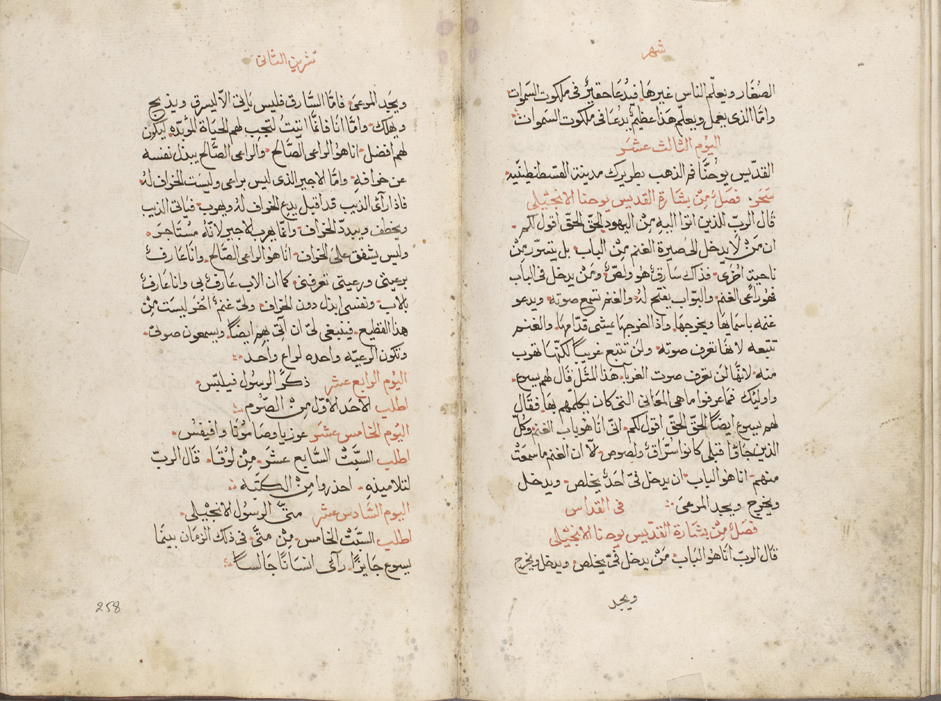 شهر
الصغار ويعلّم الناس غيرها فيدعا حقير في ملكوت السموات
وامّا الذي يعمل ويعلّم هذا عظيم يدعا في ملكوت السموات
اليوم الثالث عشر
القدّيس يوحنّا فم الذهب بطريرك مدينة القسطنطنيّيه
سَحَر فصلٌ مِنْ بشارة القديس يوحنا الانجيلي
قال الربّ الذين اتوا اليه مِنَ اليهود الحق الحق اقول لكم
ان مَنْ لا يدخل الى صيرة الغنم مِنَ الباب بل يتسوّر مِنْ
ناحيةٍ اخرى فذاك سارق هو ولصّ ومَن يدخل في الباب
فهو راعي الغنم والبوّاب يفتح له والغنم تسمع صوته ويدعو
غنمه باسمايها ويخرجها واذا اخرجها يمشي قدّامها والغنم
تتبعه لانها تعرف صوته ولن تتبع غريباً لكنّها تهرب
منه لانّها لن تعرف صوت الغربآ هذا المثل قال لهم يسوع
واوليك فما عرفوا ما هي المعاني التي كان يكلمهم بها فقال
لهم يسوع ايضاً الحقّ الحقّ اقول لكم انّي انا هو باب الغنم وكلّ
الذين جاؤا قبلي كانوا سرّاقاً ولصوص لآ ان الغنم ما سمعت
منهم انا هو الباب ان يدخل فيّ احد يخلص ويدخل
ويخرج ويجد المرعى في القداس
فصلٌ مِنْ بشارة القدّيس يوحنا الانجيلي
قال الربّ انا هو الباب مَنْ يدخل فيّ يخلص ويدخل ويخرج
ويجد
تشرين الثاني
ويجد المرعى فامّا السّارق فليس ياتي الّا ليسرق ويذبح
ويهلك وامّا انا فانّما اتيتُ لتجب لهم الحياة المؤبّده ليكون
لهم افضل انا هو الراعي الصّالح والراعي الصّالح يبذل نفسه
عن خرافه وامّا الاجير الذي ليس براعي وليست الخراف له
فاذا رآى الذيب قد اقبل يدع الخراف له ويهرب فياتي الذيب
ويخطف ويبدد الخراف وانما يهرب الاجير لانّه مستاجر
وليس يشفق على الخراف انا هو الراعي الصّالح وانا عارف
برعيتي ورعيتي تعرفني كما ان الاب عارف بي وانا عارف
بالاب ونفسي ابذل دون الخراف ولي غنمٌ اُخر ليست مِنْ
هذا القطيع فينبغي لي ان آتي بهم ايضاً ويسمعون صوتي
وتكون الرعيّه واحده لراعٍ واحد
اليوم الرابع عشر ذكر الرسول فيلبّس
اطلب الاحد الاوّل مِنَ الصّوم
اليوم الخامس عشر غوريا وصامونا وافيفس
اطلب السبّت السّابع عشر مِنْ لوقا قال الربّ
لتلاميذه احذروا مِنَ الكتبه
اليوم السّادس عشر متّى الرسول الانجيلي
اطلب السّبت الخامس مِنْ متّى في ذلك الزمان بينما
يسوع جايزاً رآى انساناً جالساً
258